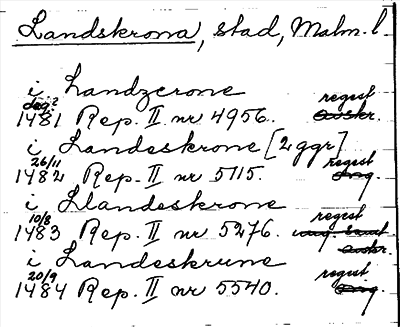 Landskrona, stad, Malm. l.
i Landzcrone
dag? regest
1481 Rep. II nr 4956. avskr.
i Landeskrone [2 ggr]
26/11 regest
1482 Rep. II nr 5115. orig.
i Llandeskrone
10/8 regest
1483 Rep. II nr 5276. samt
avskr.
i Landeskrune
20/9 regest
1484 Rep. II nr 5540. orig.